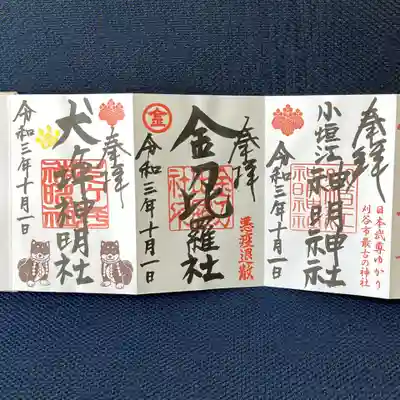 奉拝
小垣江神明神社
令和三年十月一日
日本武尊ゆかり
刈谷市最古の神社
奉拝
金刀比羅社
令和三年十月一日
悪疫退散
金
奉拝
犬ヶ坪神明社
令和三年十月一日